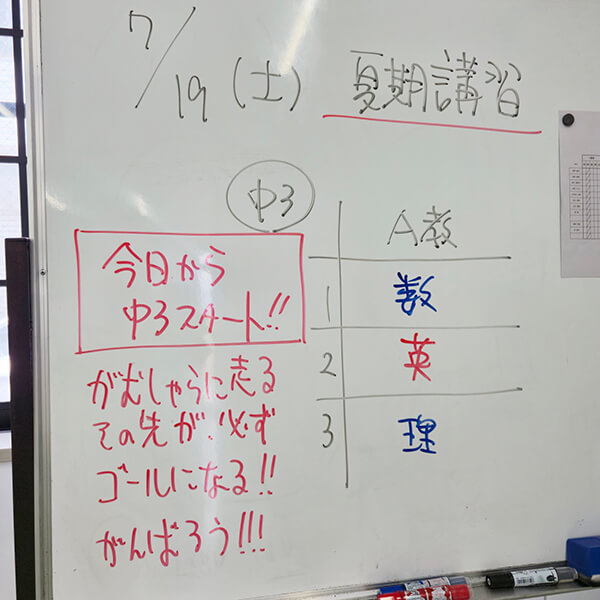 7/19(土) 夏期講習
中3
今日から
中3スタート!!
がむしゃらに走る
その先が必ず
ゴールになる!!
がんばろう!!!
A教
1 数
2 英
3 理